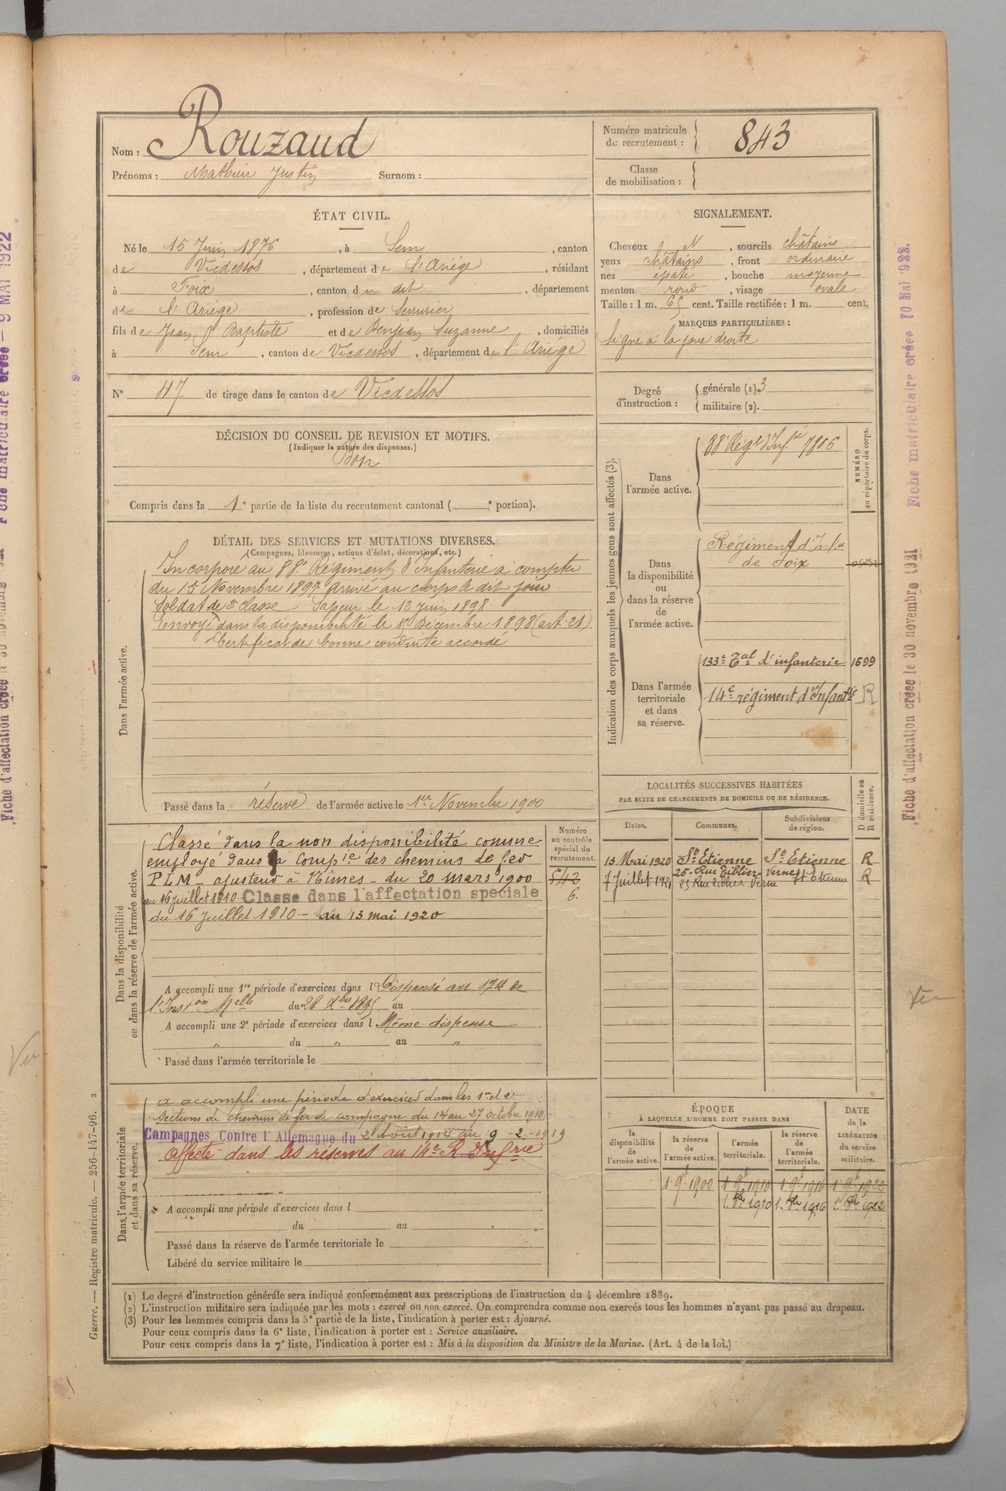 Nom : Rouzaud
Prénoms : Mathieu Justin Surnom :
Numéro matricule du recrutement : 843
Classe de mobilisation :
ÉTAT CIVIL.
Né le 15 Juin 1876, à Sem, canton
de Vicdessos, département de l'Ariège, résidant
à Foix, canton du dit, département
de l'Ariège, profession de Serrurier
fils de Jean Baptiste et de Suzanne, domiciliés
à Sem, canton de Vicdessos, département de l'Ariège
N° 47 de tirage dans le canton de Vicdessos
SIGNALEMENT.
Cheveux N, sourcils châtains
yeux châtains, front ordinaire
nez épaté, bouche moyenne
menton rond, visage ovale
Taille : 1 m. 65 cent. Taille rectifiée : 1 m. cent.
MARQUES PARTICULIÈRES :
Signe à la joue droite
Degré d'instruction : générale (1). 3
militaire (2).
DÉCISION DU CONSEIL DE REVISION ET MOTIFS.
(Indiquer la nature des dispenses.)
Bon
Compris dans la 1e partie de la liste du recrutement cantonal ( e portion).
DÉTAIL DES SERVICES ET MUTATIONS DIVERSES.
(Campagnes, blessures, actions d'éclat, décorations, etc.)
Dans l'armée active.
Incorporé au 88e Régiment d'Infanterie à compter
du 15 Novembre 1897 arrivé au corps le dit jour
Soldat de 2e classe Sapeur le 12 Juin 1898
Envoyé dans la disponibilité le Décembre 1898 (art 21)
Certificat de bonne conduite accordé
Passé dans la réserve de l'armée active le 1er Novembre 1900
Indication des corps auxquels les jeunes gens sont affectés (3).
NUMÉRO au répertoire du corps.
Dans l'armée active.
88e Régt d'Infie 7806
Dans la disponibilité ou dans la réserve de l'armée active.
Régiment d'Infie
de Foix
Dans l'armée territoriale et dans sa réserve.
133e Tal d'infanterie 1699
14e régiment d'Infantie R
Dans la disponibilité ou dans la réserve de l'armée active.
Numéro au contrôle spécial du recrutement.
543
6.
Classé dans la non disponibilité comme
employé dans la Compie des chemins de fer
PLM – ajusteur à Nîmes – du 20 mars 1900
au 16 juillet 1910 Classé dans l'affectation spéciale
du 16 Juillet 1910 – au 13 mai 1920
A accompli une 1re période d'exercices dans l Dispensé art
du 28 Xbre au
A accompli une 2e période d'exercices dans l Même dispense
du " au "
Passé dans l'armée territoriale le
LOCALITÉS SUCCESSIVES HABITÉES
PAR SUITE DE CHANGEMENTS DE DOMICILE OU DE RÉSIDENCE.
Dates. Communes. Subdivisions de région. D domicile ou R résidence.
13 Mai 1920 St Etienne St Etienne R
25 Rue
7 Juillet 25 Rue Verne St Etienne R
Dans l'armée territoriale et dans sa réserve.
a accompli une période d'exercices dans les 1re et 2e
sections de chemins de fer de campagne du 14 au 27 octobre 1910
Campagnes Contre l'Allemagne du 2 Août 1914 au 9 – 2 – 1919
Affecté dans les réserves au 14e R Infrie
A accompli une période d'exercices dans l
du au
Passé dans la réserve de l'armée territoriale le
Libéré du service militaire le
ÉPOQUE
À LAQUELLE L'HOMME DOIT PASSER DANS
la disponibilité de l'armée active. la réserve de l'armée active. l'armée territoriale. la réserve de l'armée territoriale.
DATE de la LIBÉRATION du service militaire.
1 9e 1900 1 9e 1910 1 9e 1916 1 9e 1922
1 8bre 1910 1 8bre 1916 1 8bre 1922
(1) Le degré d'instruction générale sera indiqué conformément aux prescriptions de l'instruction du 4 décembre 1889.
(2) L'instruction militaire sera indiquée par les mots : exercé ou non exercé. On comprendra comme non exercés tous les hommes n'ayant pas passé au drapeau.
(3) Pour les hommes compris dans la 5e partie de la liste, l'indication à porter est : Ajourné.
Pour ceux compris dans la 6e liste, l'indication à porter est : Service auxiliaire.
Pour ceux compris dans la 7e liste, l'indication à porter est : Mis à la disposition du Ministre de la Marine. (Art. 4 de la loi.)
Guerre. — Registre matricule. — 256-147-96.
Fiche d'affectation créée le 30 novembre 1921 Fiche matriculaire créée 10 Mai 1922.
Fiche d'affectation créée le 30 novembre
Fiche matriculaire créée – 9 MAI 1922
Vu
Vu